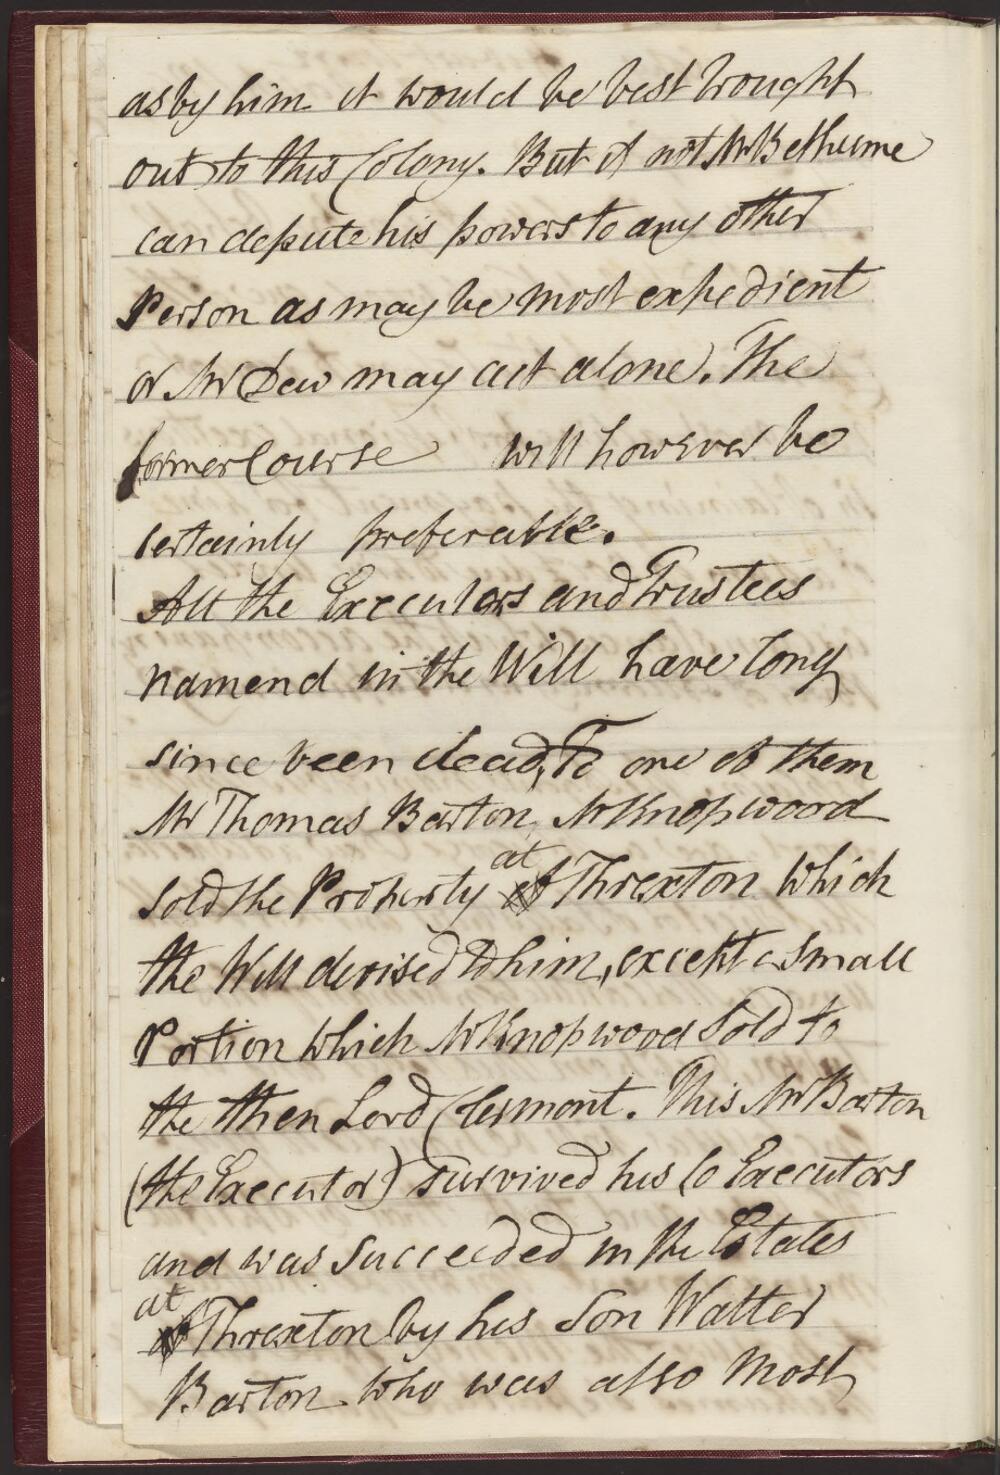 as by him it would be best brought
out to this Colony. But if not Mr Bethume
can depute his powers to any other
Person as may be most expedient
or Mr Dew may act alone. The
former Course will however be
certainly preferable.
All the Executors and Trustees
namend in the Will have long
since been dead, To one of them
Mr Thomas Barton, Mr Knopwood
at
sold the Property of Threxton which
the Will devised to him, except a Small
Portion which Mr Knopwood Sold to
the then Lord Clermont. This Mr Barton
(the Executor) survived his Co Executors
and was Succeeded in the Estates
at
of Threxton by his Son Walter
Barton who was also Most